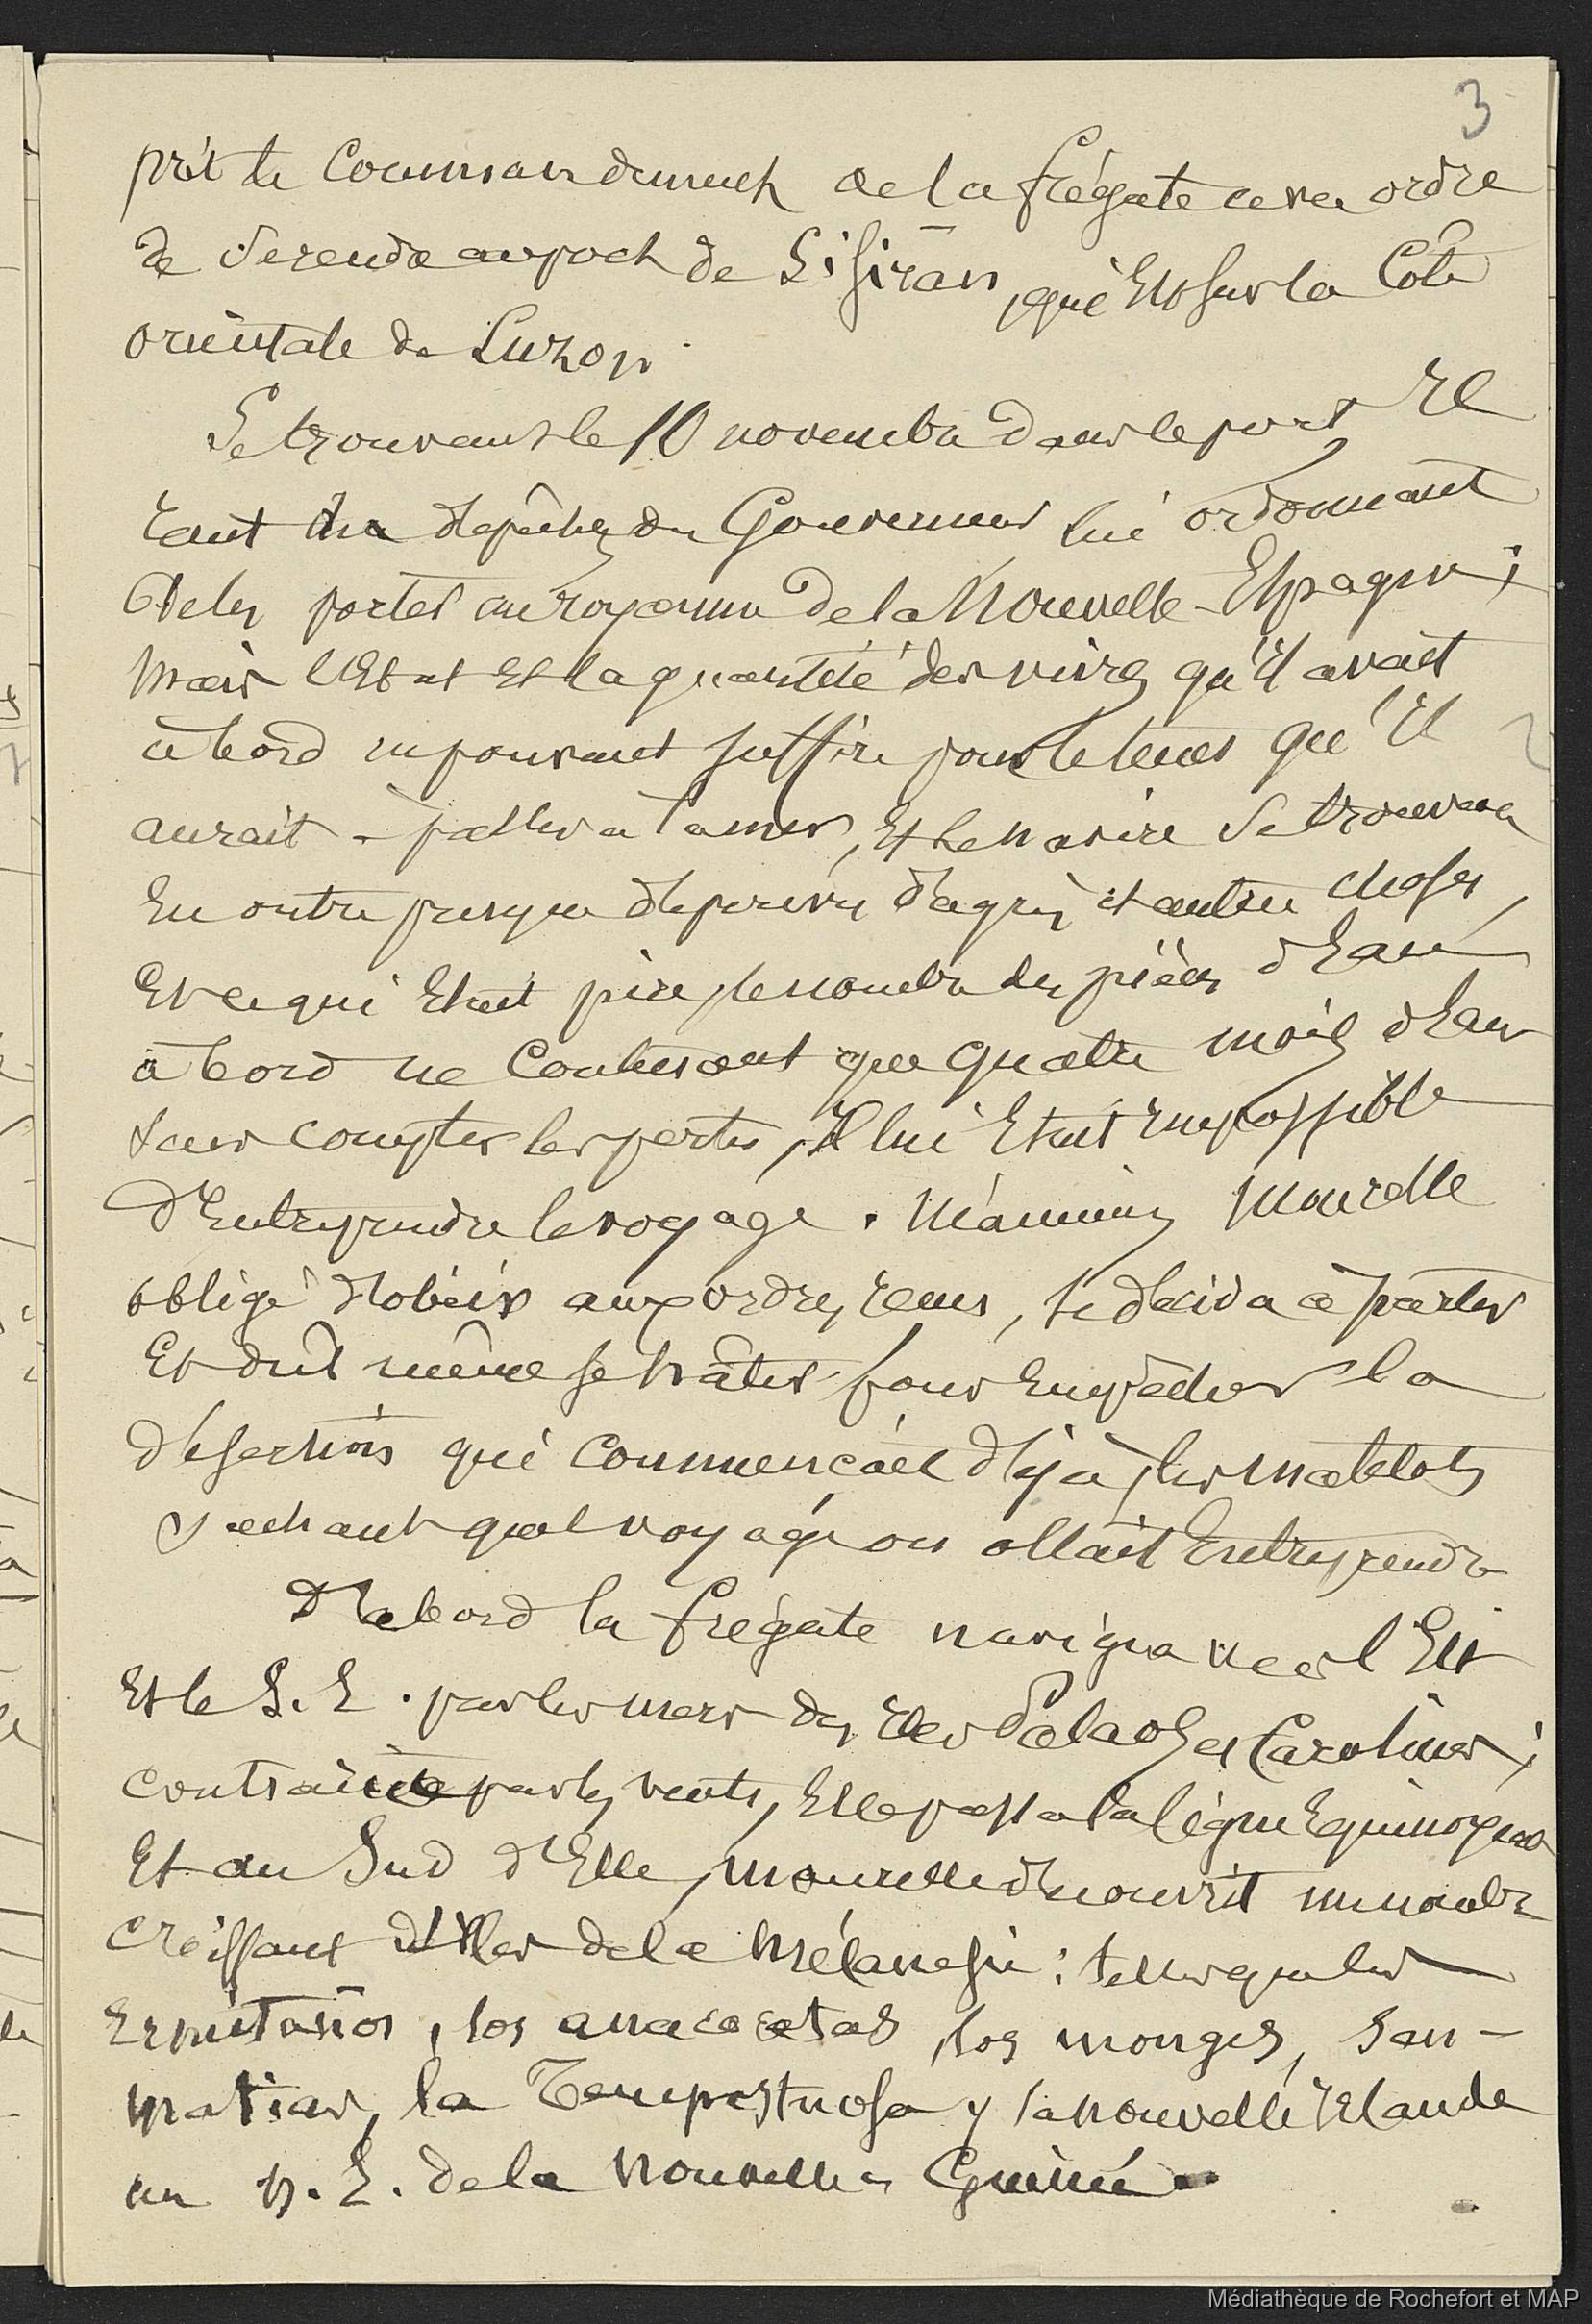 3
prit le Commandement de la frégate avec ordre
de se rendre au port de Sisiran, qui Est sur la Côte
orientale de Luzon.
Se trouvant le 10 novembre dans le port, re
çeut des depêches du Gouverneur lui ordonnant
de les porter au royaume de la Nouvelle-Espagne;
Mais l'Etat et la quantité des vivres qu'il avait
à bord ne pouvant suffire pour le temps qu'il
aurait à passer à la mer, Et le navire se trouvant
En outre presque depourvu d'agrès et autres choses,
Et ce qui Etait pire, le nombre des pièces d'Eau
à bord ne Contenant que quatre mois d'Eau
sans compter les pertes, Il lui Etait impossible
d'Entreprendre le voyage. Néanmoins Mourelle
obligé d'obéir aux ordres reçus, se décida à partir
Et dut même se hâter pour Empêcher la
désertion qui Commençait déjà, les matelots
sachant quel voyage on allait Entreprendre
D'abord la frégate navigua vers l'Est
Et le S. E. par les mers des Iles Palaos et Carolines;
contrainte par les vents, Elle passa la ligne Equinoxiale
Et au Sud d'Elle, Mourelle decouvrit un nombre
croissant d'Iles de la Mélanesie: telles que les
Ermitaños, los anacoretas, los monges, San-
Matias, la Tempestuosa y la nouvelle Irlande
au N. E. de la Nouvelle Guinée.
Médiathèque de Rochefort et MAP